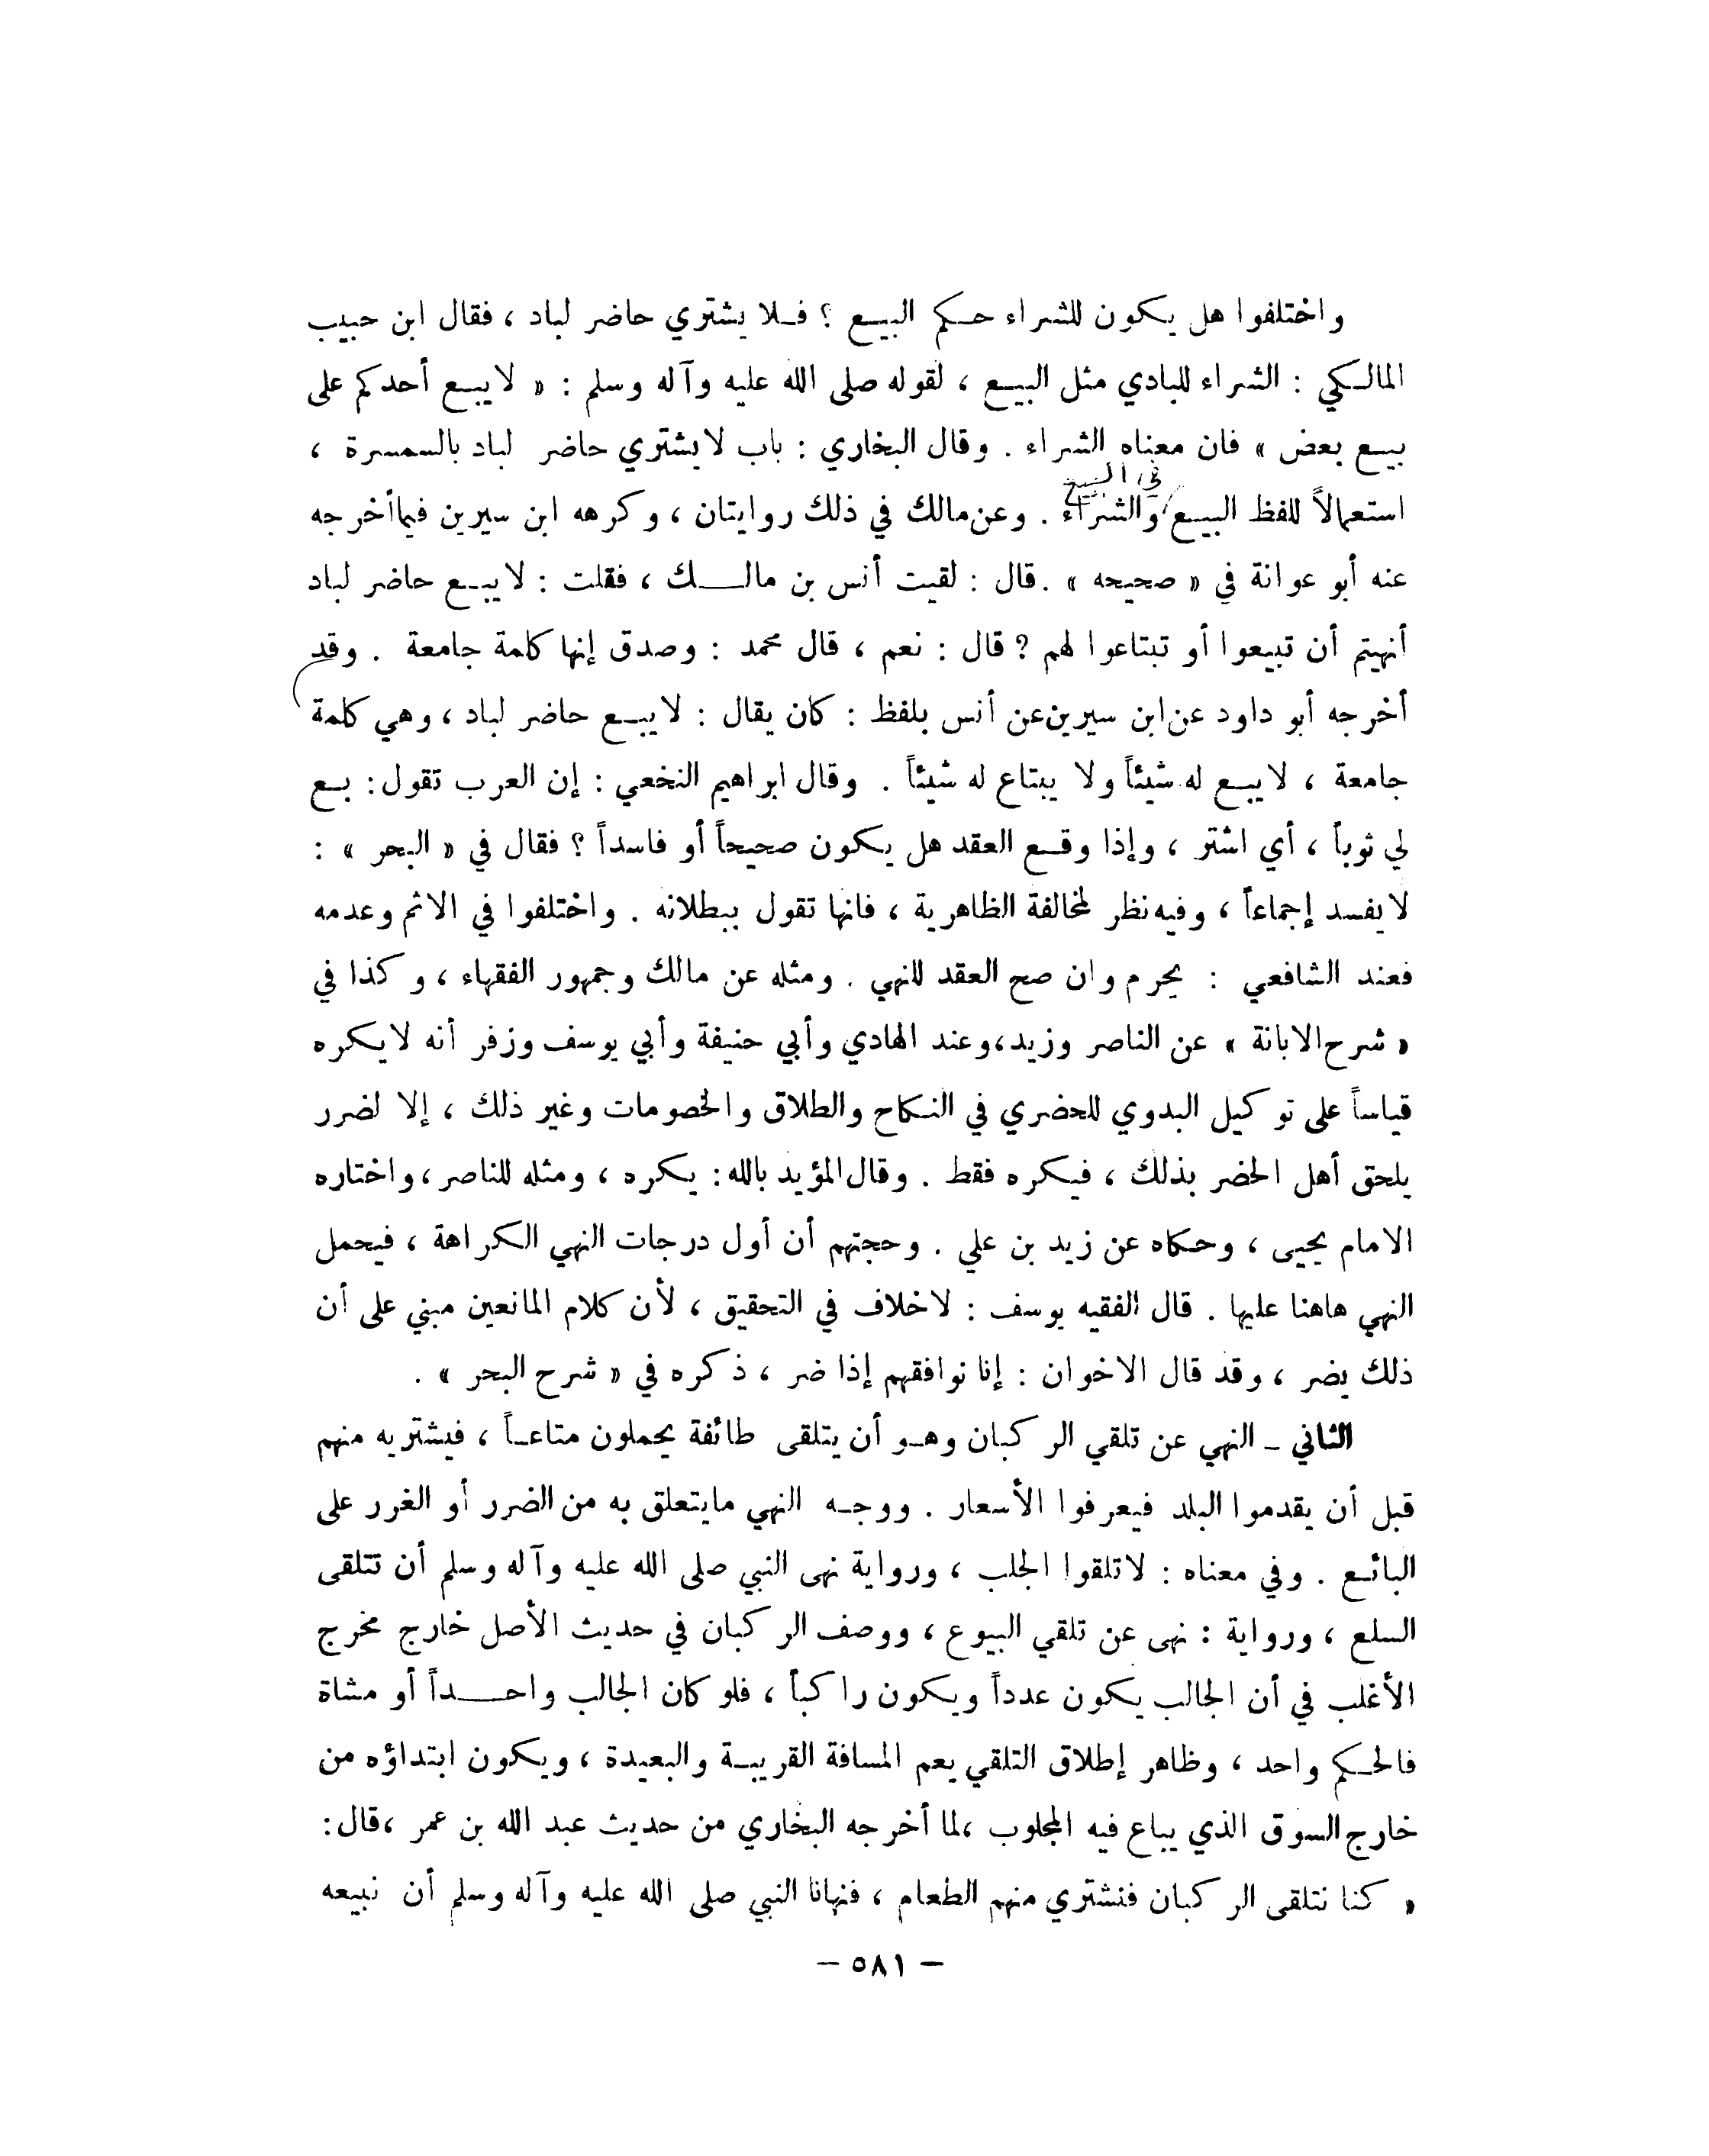 واختلفوا هل يكون للشراء حكم البيع ؟ فلا يشتري حاضر لباد ، فقال ابن حبيب
المالكي : الشراء للبادي مثل البيع ، لقوله صلى الله عليه وآله وسلم : « لا يبع أحدكم على
بيع بعض » فان معناه الشراء . وقال البخاري : باب لا يشتري حاضر لباد بالسمسرة ،
في البيع
استعمالاً للفظ البيع والشراء . وعن مالك في ذلك روايتان ، وكرهه ابن سيرين فيما أخرجه
عنه أبو عوانة في « صحيحه » . قال : لقيت أنس بن مالك ، فقلت : لا يبع حاضر لباد
أنهيتم أن تبيعوا أو تبتاعوا لهم ؟ قال : نعم ، قال محمد : وصدق إنها كلمة جامعة . وقد
أخرجه أبو داود عن ابن سيرين عن أنس بلفظ : كان يقال : لا يبع حاضر لباد ، وهي كلمة
جامعة ، لا يبع له شيئاً ولا يبتاع له شيئاً . وقال ابراهيم النخعي : إن العرب تقول : بع
لي ثوباً ، أي اشتر ، وإذا وقع العقد هل يكون صحيحاً أو فاسداً ؟ فقال في « البحر » :
لا يفسد إجماعاً ، وفيه نظر لمخالفة الظاهرية ، فانها تقول ببطلانه . واختلفوا في الاثم وعدمه
فعند الشافعي : يحرم وان صح العقد للنهي . ومثله عن مالك وجمهور الفقهاء ، وكذا في
« شرح الابانة » عن الناصر وزيد ، وعند الهادي وأبي حنيفة وأبي يوسف وزفر أنه لا يكره
قياساً على توكيل البدوي للحضري في النكاح والطلاق والخصومات وغير ذلك ، إلا لضرر
يلحق أهل الحضر بذلك ، فيكره فقط . وقال المؤيد بالله : يكره ، ومثله للناصر ، واختاره
الامام يحيى ، وحكاه عن زيد بن علي . وحجتهم أن أول درجات النهي الكراهة ، فيحمل
النهي هاهنا عليها . قال الفقيه يوسف : لا خلاف في التحقيق ، لأن كلام المانعين مبني على أن
ذلك يضر ، وقد قال الاخوان : إنا نوافقهم إذا ضر ، ذكره في « شرح البحر » .
الثاني ـ النهي عن تلقي الركبان وهو أن يتلقى طائفة يحملون متاعاً ، فيشتريه منهم
قبل أن يقدموا البلد فيعرفوا الأسعار . ووجه النهي ما يتعلق به من الضرر أو الغرر على
البائع . وفي معناه : لا تلقوا الجلب ، ورواية نهى النبي صلى الله عليه وآله وسلم أن تتلقى
السلع ، ورواية : نهى عن تلقي البيوع ، ووصف الركبان في حديث الأصل خارج مخرج
الأغلب في أن الجالب يكون عدداً ويكون راكباً ، فلو كان الجالب واحداً أو مشاة
فالحكم واحد ، وظاهر إطلاق التلقي يعم المسافة القريبة والبعيدة ، ويكون ابتداؤه من
خارج السوق الذي يباع فيه المجلوب ، لما أخرجه البخاري من حديث عبد الله بن عمر ، قال :
« كنا نتلقى الركبان فنشتري منهم الطعام ، فنهانا النبي صلى الله عليه وآله وسلم أن نبيعه
— ٥٨١ —